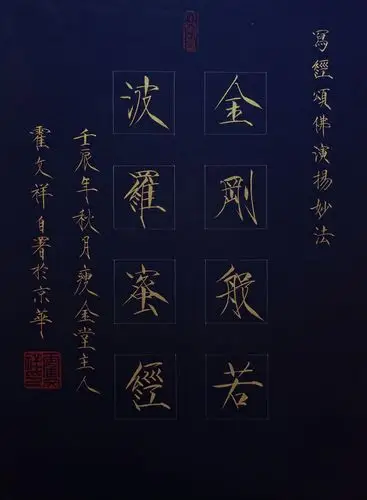 寫經頌佛演揚妙法
金剛般若
波羅蜜經
壬辰年秋月瘦金堂主人
霍文祥自署於京華